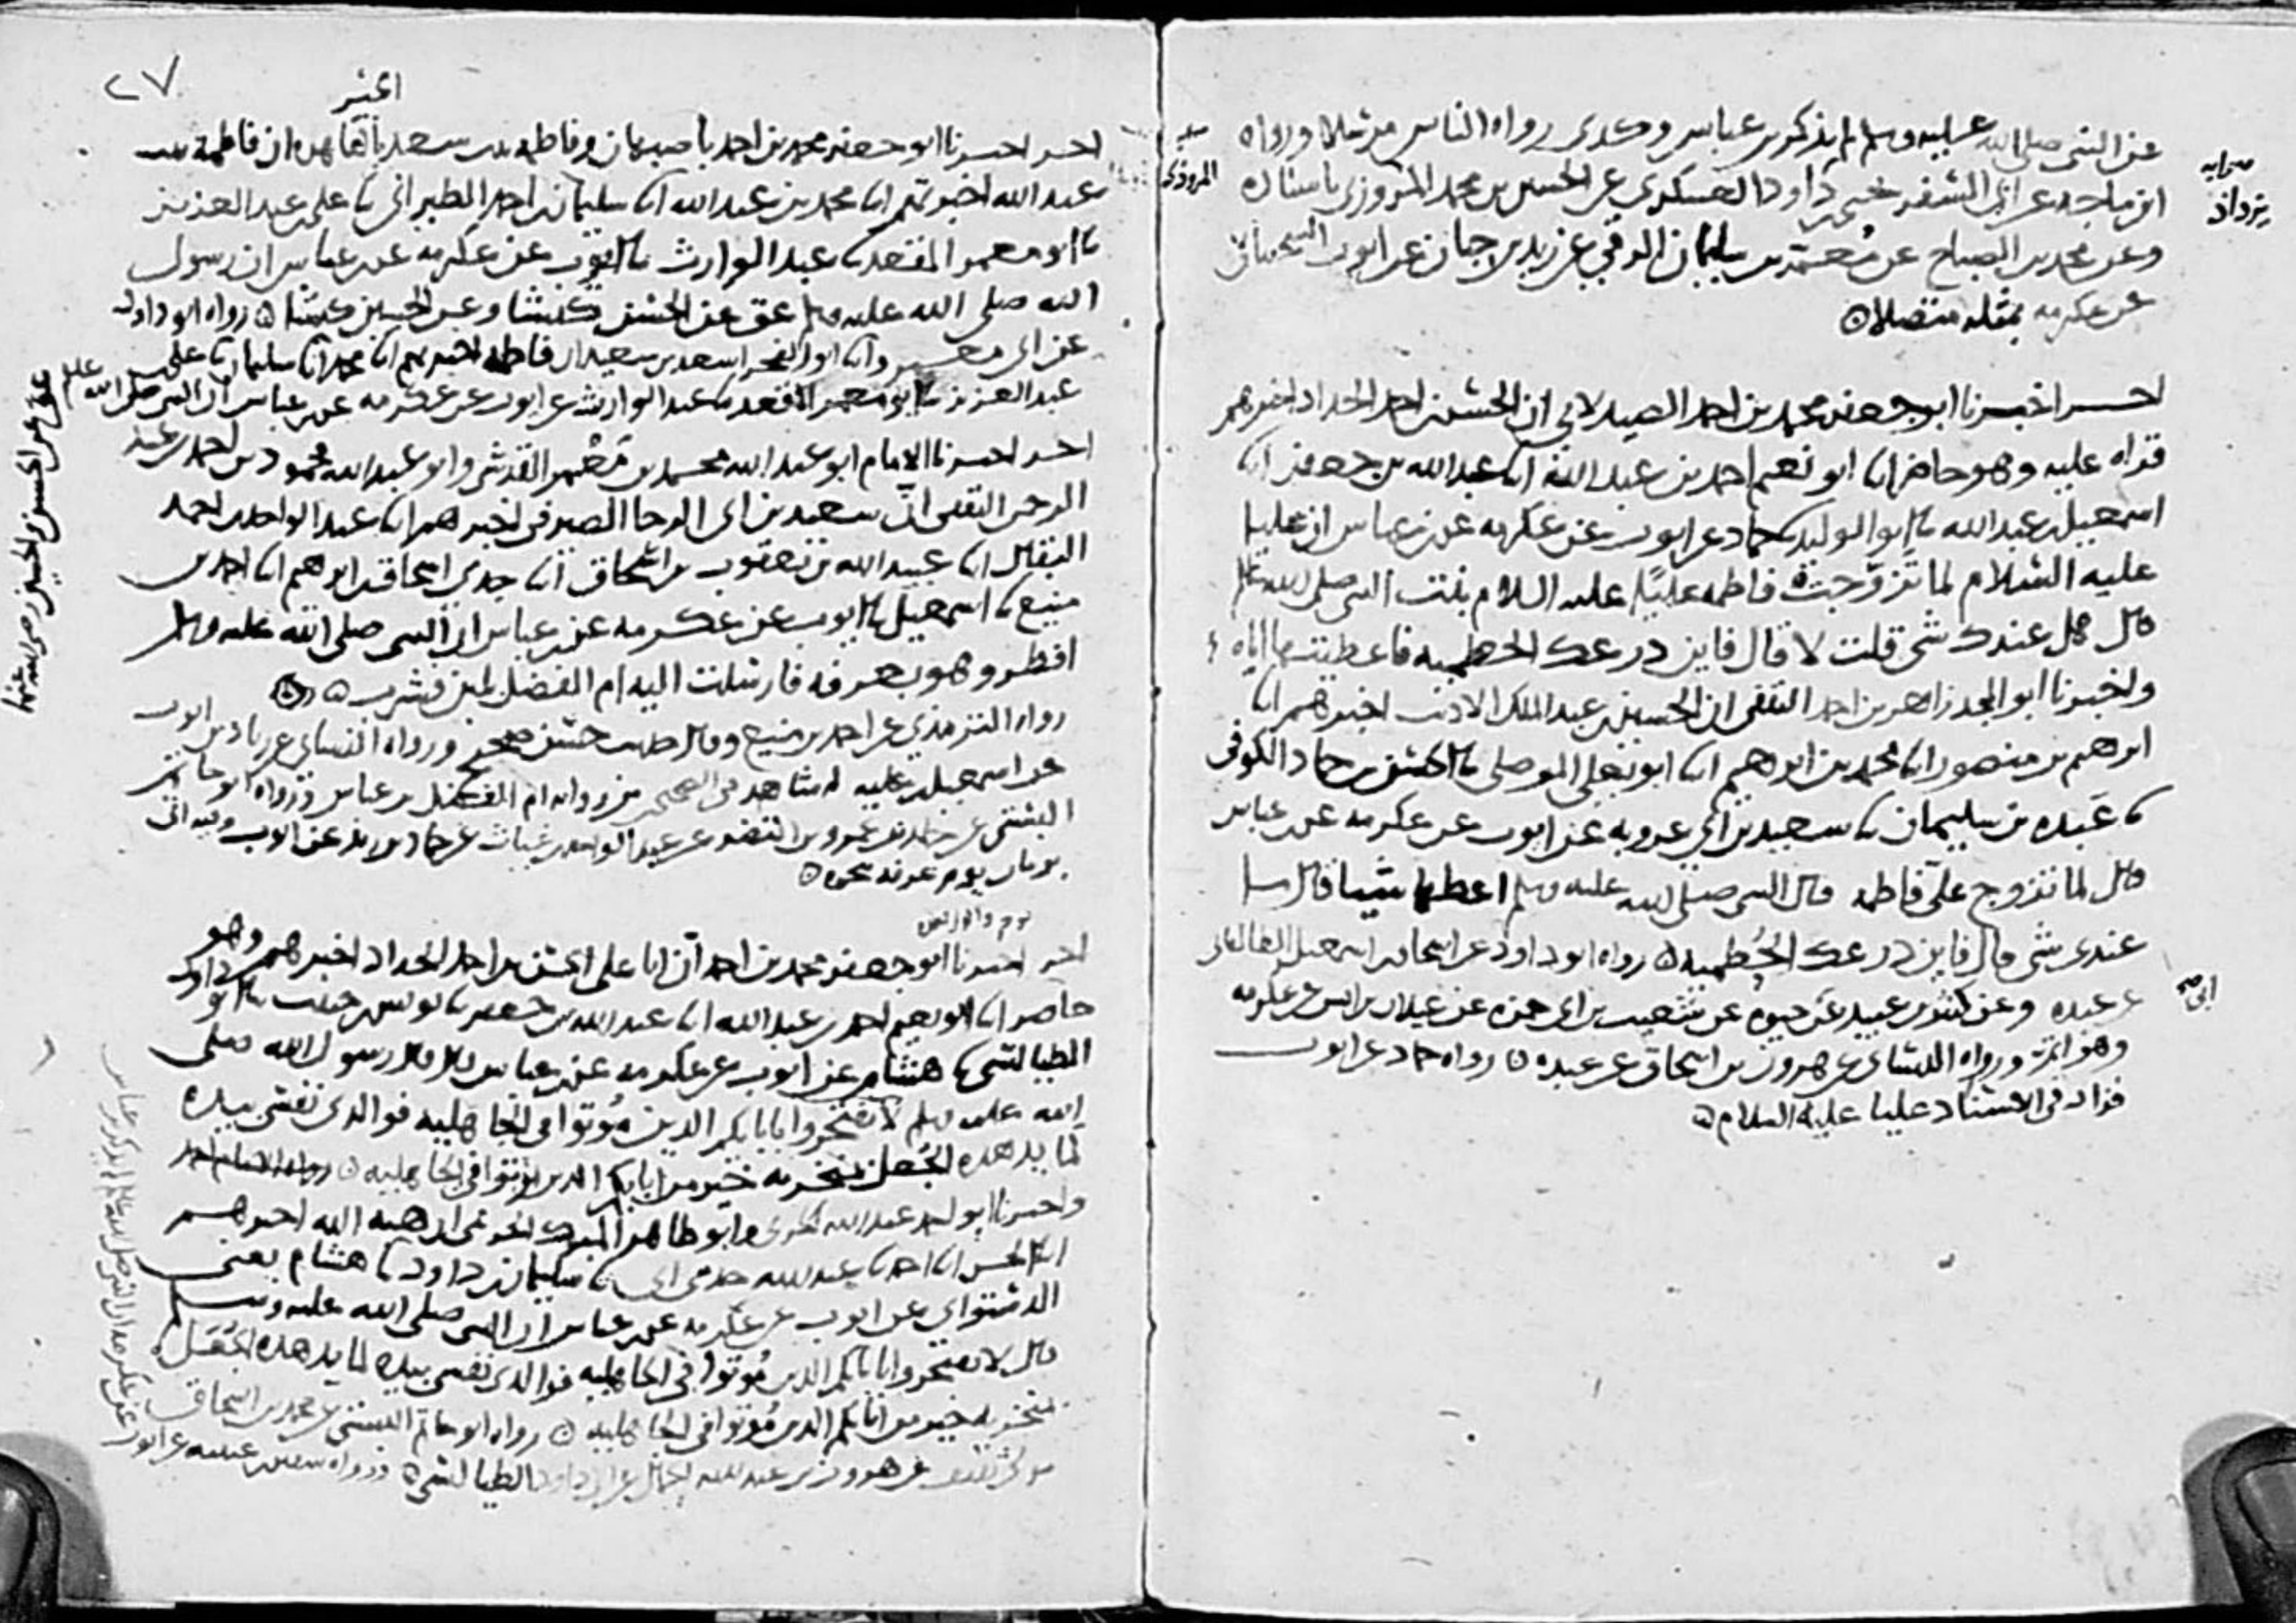 عن النبي صلى الله عليه وسلم لم يذكر بن عباس وكذى رواه الناس مرسلا ورواه
ابن ماجه عن ابي السقر يحيى بن داود العسكري عن الحسين بن محمد المروزي باسناده
وعن محمد بن الصباح عن معمر بن سليمان الرقي عن زيد بن حبان عن ايوب السختياني
عن عكرمه بمثله متصلا
صوابه
يزداذ
المروذي
اخبرنا ابو جعفر محمد بن احمد الصيدلاني ان الحسن بن احمد الحداد اخبرهم
قراه عليه وهو حاضر ابنا ابو نعيم احمد بن عبد الله ابنا عبد الله بن جعفر ابنا
اسمعيل بن عبد الله ثنا ابو الوليد ثنا حماد عن ايوب عن عكرمه عن بن عباس ان عليا
عليه السلام لما تزوجت فاطمه عليها السلام بنت النبي صلى الله عليه وسلم
قال هل عندك شي قلت لا قال فاين درعك الحطميه فاعطيتها اياه
واخبرنا ابو المجد زاهر بن احمد الثقفي ان الحسين بن عبد الملك الاديب اخبرهم ابنا
ابرهيم بن منصور ابنا محمد بن ابرهيم ابنا ابو يعلى الموصلي ثنا الحسن بن حماد الكوفي
ثنا عبده بن سليمان ثنا سعيد بن ابي عروبه عن ايوب عن عكرمه عن بن عباس
قال لما تزوج علي فاطمه قال النبي صلى الله عليه وسلم اعطها شيا قال ما
عندى شي قال فاين درعك الحطميه رواه ابو داود عن اسحاق بن اسمعيل الطالقاني
عن عبده وعن كثير بن عبيد عن حيوه عن شعيب بن ابي حمزه عن غيلان بن انس عن عكرمه
وهو اتم ورواه النسائي عن هرون بن اسحاق عن عبده رواه حماد عن ايوب
فزاد في الاسناد عليا عليه السلام
٢٧
اخبرنا ابو جعفر محمد بن احمد باصبهان وفاطمه بنت سعد بالقاهره ان فاطمة بنت
عبد الله اخبرتهم ابنا محمد بن عبد الله ابنا سليمان بن احمد الطبراني ثنا علي بن عبد العزيز
ثنا ابو معمر المقعد ثنا عبد الوارث ثنا ايوب عن عكرمه عن بن عباس ان رسول
الله صلى الله عليه وسلم عق عن الحسن كبشا وعن الحسين كبشا رواه ابو داود
عن ابي معمر وابنا ابو الفخر اسعد بن سعيد ان فاطمه اخبرتهم ابنا محمد ابنا سليمان ثنا علي بن
عبد العزيز ثنا ابو معمر المقعد ثنا عبد الوارث عن ايوب عن عكرمه عن بن عباس ان النبي صلى الله عليه وسلم
عق عن الحسن والحسين رضي الله عنهما
اخبرنا الامام ابو عبد الله محمد بن معمر القرشي وابو عبد الله محمود بن احمد بن عبد
الرحمن الثقفي ان سعيد بن ابي الرجا الصيرفي اخبرهم ابنا عبد الواحد بن احمد
البقال ابنا عبيد الله بن يعقوب بن اسحاق ابنا جدي اسحاق بن ابرهيم ابنا احمد بن
منيع ثنا اسمعيل ثنا ايوب عن عكرمه عن بن عباس ان النبي صلى الله عليه وسلم
افطر وهو بعرفه فارسلت اليه ام الفضل لبن فشرب
رواه الترمذي عن احمد بن منيع وقال حديث حسن صحيح ورواه النسائي عن زياد بن ايوب
عن اسمعيل بن عليه له شاهد في الصحيحين من رواية ام الفضل بن عباس ورواه ابو حاتم
البستي عن عبد الواحد بن غياث عن حماد بن زيد عن ايوب وفيه اتي
برمان يوم عرفه نحوه
اخبرنا ابو جعفر محمد بن احمد ان ابا علي الحسن بن احمد الحداد اخبرهم وهو
حاضر ابنا ابو نعيم احمد بن عبد الله ابنا عبد الله بن جعفر ثنا يونس بن حبيب ثنا ابو داود
الطيالسي ثنا هشام عن ايوب عن عكرمه عن بن عباس قال قال رسول الله صلى
الله عليه وسلم لا تفتخروا بابايكم الذين موتوا في الجاهليه فوالذي نفسي بيده
لما يدهده الجعل بمنخريه خير من ابايكم الذين موتوا في الجاهليه رواه الامام احمد
واخبرنا ابو احمد عبد الله الحربي وابو طاهر المبارك الحريمي ان هبة الله اخبرهم
ابنا الحسن ابنا احمد ثنا عبد الله حدثني ابي ثنا سليمان بن داود ثنا هشام يعني
الدستواي عن ايوب عن عكرمه عن بن عباس ان النبي صلى الله عليه وسلم
قال لا تفتخروا بابايكم الذين موتوا في الجاهليه فوالذي نفسي بيده لما يدهده الجعل
بمنخريه خير من ابايكم الذين موتوا في الجاهليه رواه ابو حاتم البستي عن محمد بن اسحاق
بن ثقيف عن هرون بن عبد الله الحمال عن ابي داود الطيالسي ورواه عن ايوب
عن عكرمه ان النبي صلى الله عليه وسلم لم يذكر بن عباس